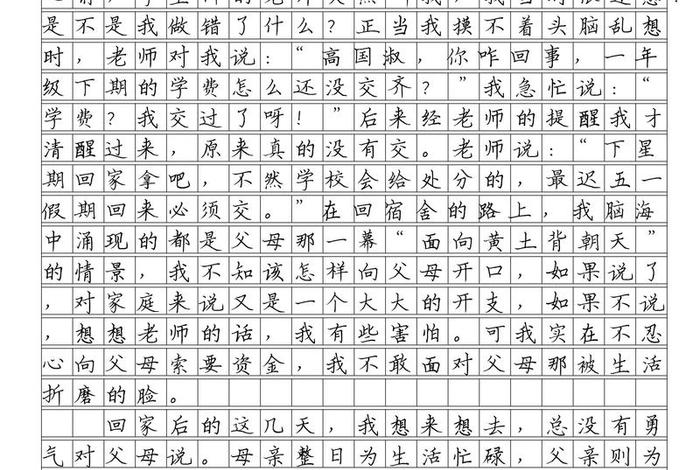 是不是我做错了什么？正当我摸不着头脑乱想
时，老师对我说：“高国淑，你咋回事，一年
级下期的学费怎么还没交齐？”我急忙说：“
学费？我交过了呀！”后来经老师的提醒我才
清醒过来，原来真的没有交。老师说：“下星
期回家拿吧，不然学校会给处分的，最迟五一
假期回来必须交。”在回宿舍的路上，我脑海
中涌现的都是父母那一幕“面向黄土背朝天”
的情景，我不知该怎样向父母开口，如果说了
，对家庭来说又是一个大大的开支，如果不说
，想想老师的话，我有些害怕。可我实在不忍
心向父母索要资金，我不敢面对父母那被生活
折磨的脸。
回家后的这几天，我想来想去，总没有勇
气对父母说。母亲整日为生活忙碌，父亲则为